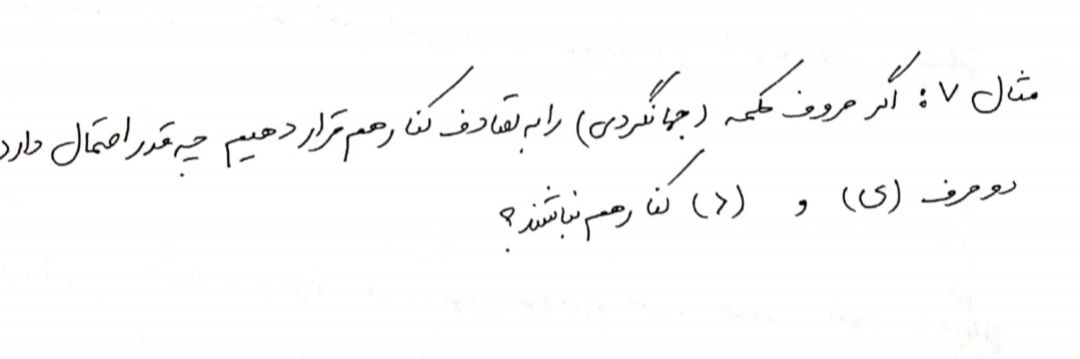 مثال ۷: اگر حروف کلمه (جهانگردی) را به تصادف کنار هم قرار دهیم چه قدر احتمال دارد
دو حرف (ی) و (د) کنار هم نباشند؟